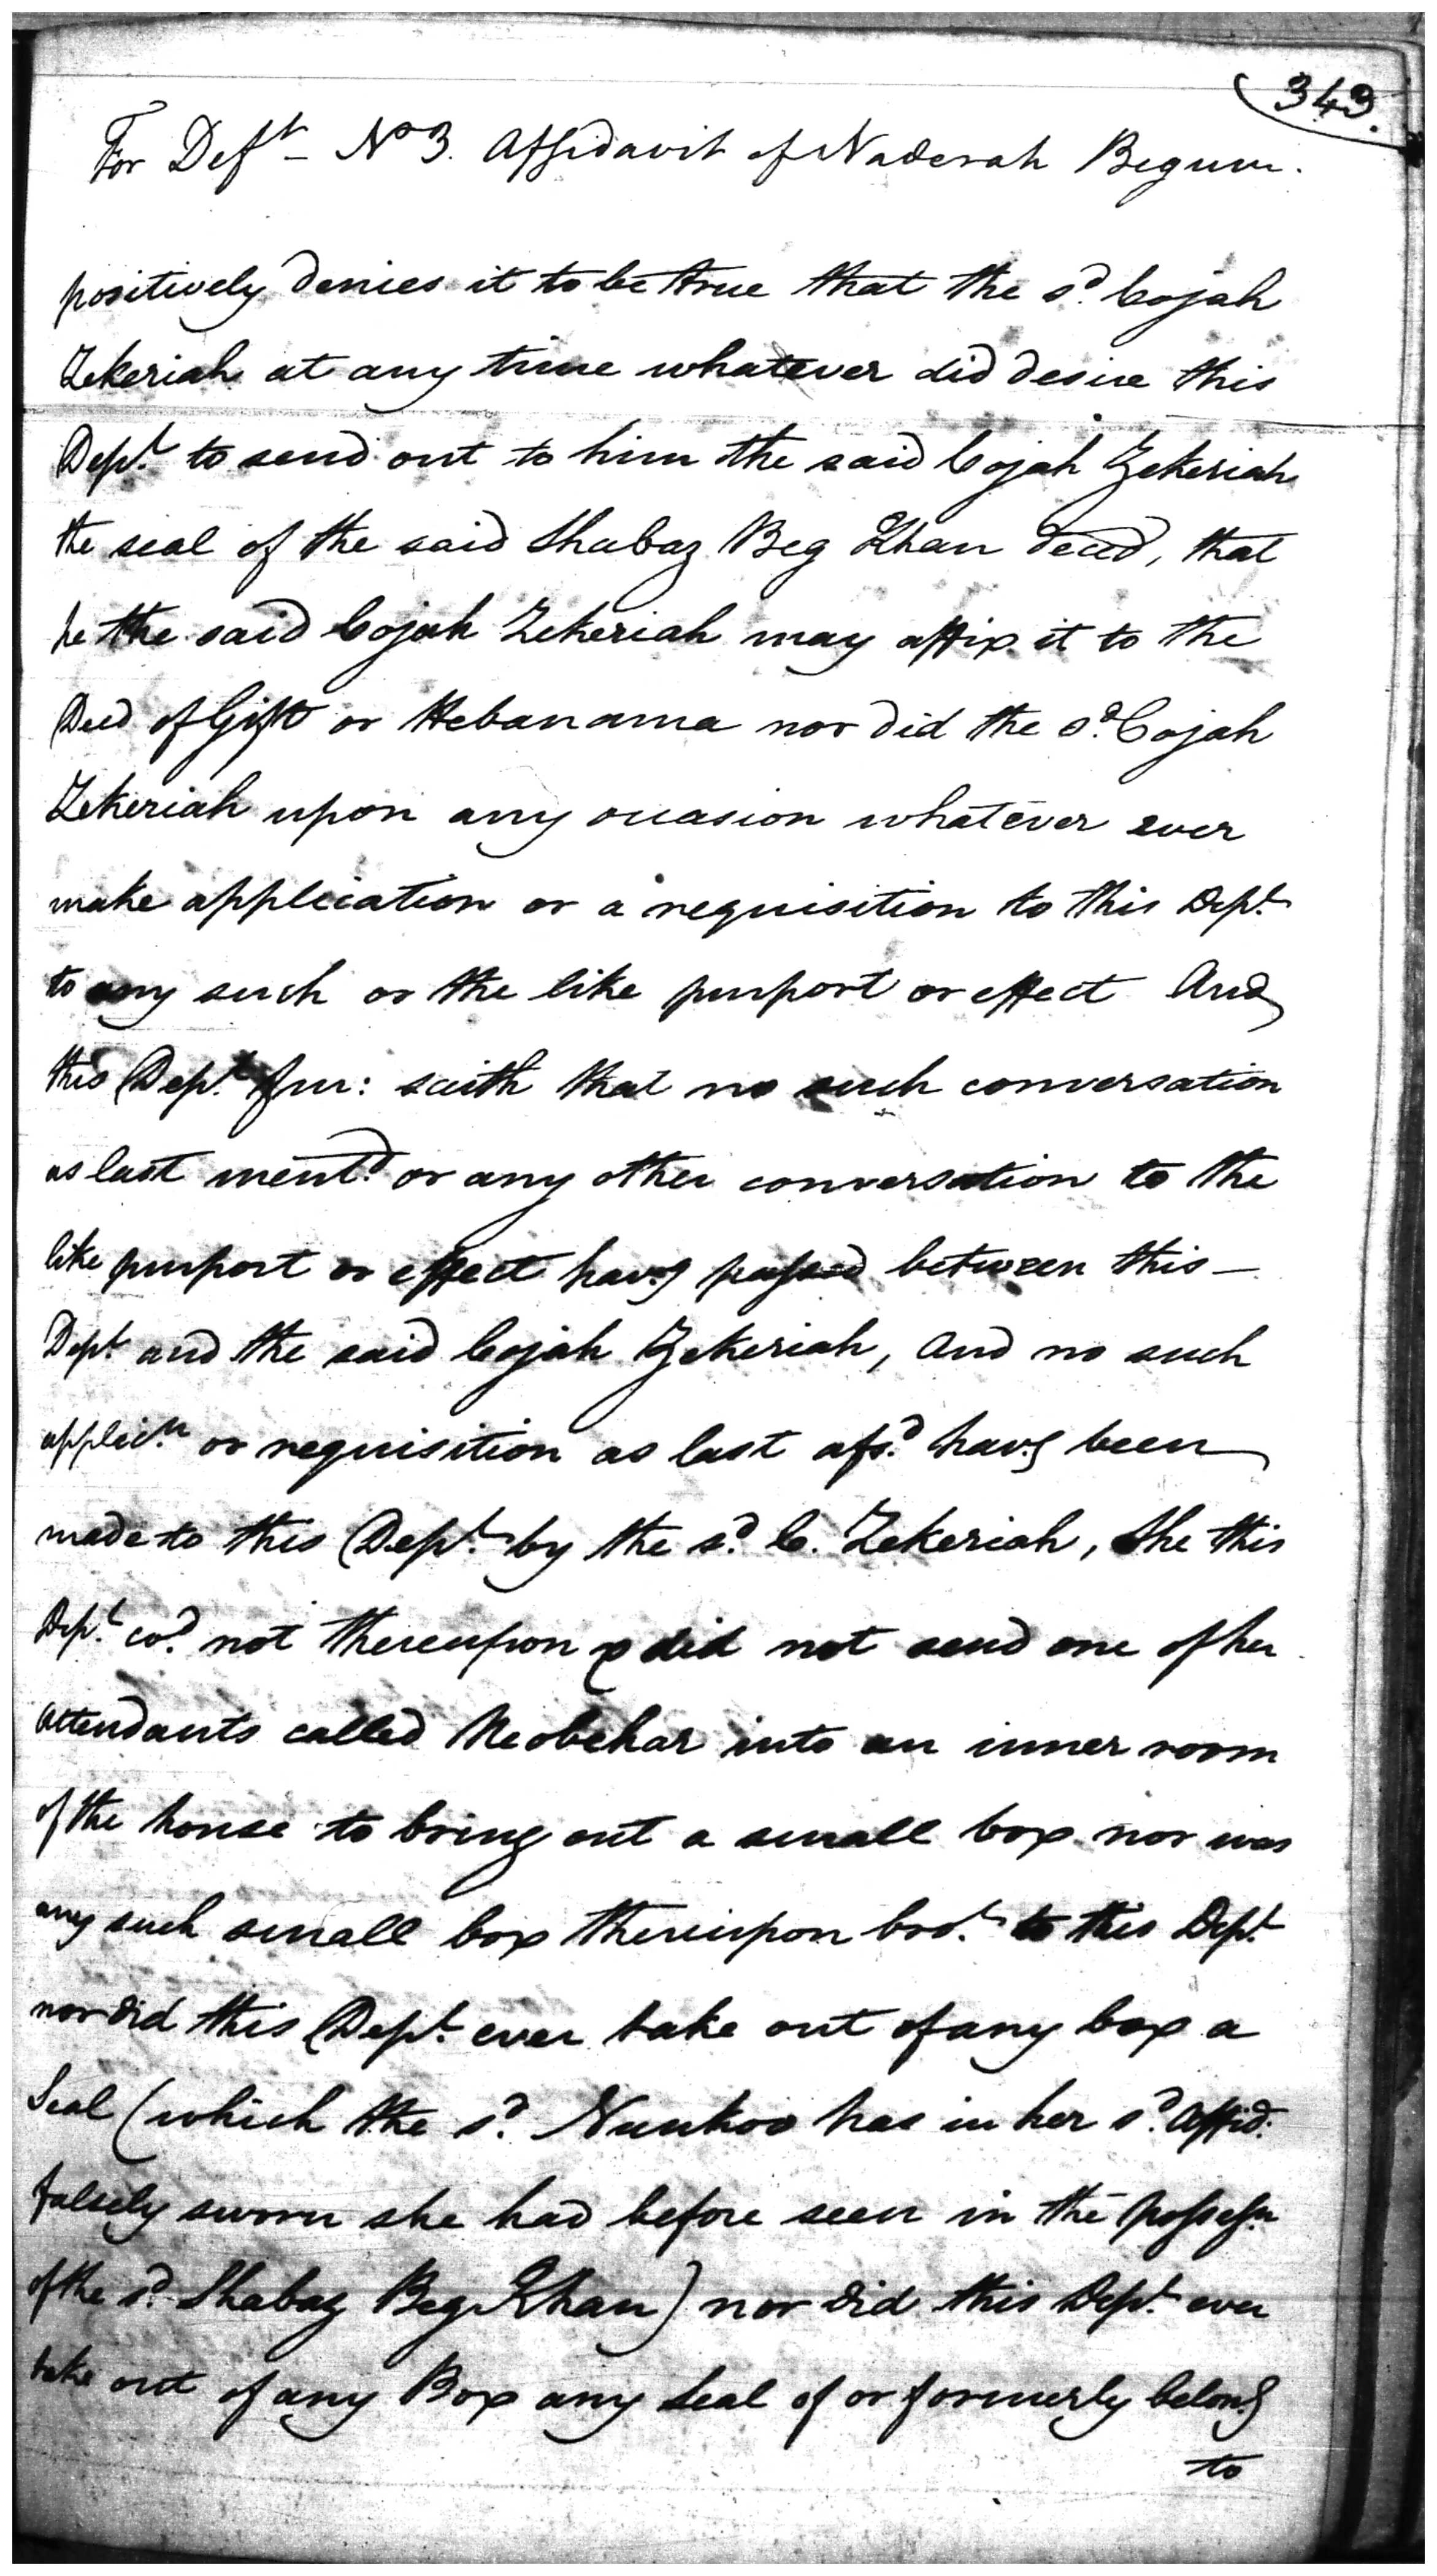 343.
For Deft - No 3. Affidavit of Naderah Begum.
positively denies it to be true that the sd. Cojah
Zekeriah at any time whatever did desire this
Dept. to send out to him the said Cojah Zekeriah
the seal of the said Shabaz Beg Khan decd, that
he the said Cojah Zekeriah may affix it to the
Deed of Gift or Hebanama nor did the sd. Cojah
Zekeriah upon any occasion whatever ever
make application or a requisition to this Dept.
to any such or the like purport or effect And
this Dept. fur: saith that no such conversation
as last mentd. or any other conversation to the
like purport or effect havg passed between this -
Dept. and the said Cojah Zekeriah, and no such
applicn. or requisition as last afsd. havg been
made to this Dept. by the sd. C. Zekeriah, she this
Dept. cod. not thereupon & did not send one of her
attendants called Neobehar into an inner room
of the house to bring out a small box nor was
any such small box thereupon brot. to this Dept.
nor did this Dept. ever take out of any box a
Seal (which the sd. Nunkoo has in her sd. affid:
falsely sworn she had before seen in the possessn
of the sd. Shabaz Beg Khan) nor did this Dept. ever
take out of any Box any Seal of or formerly belongg
to